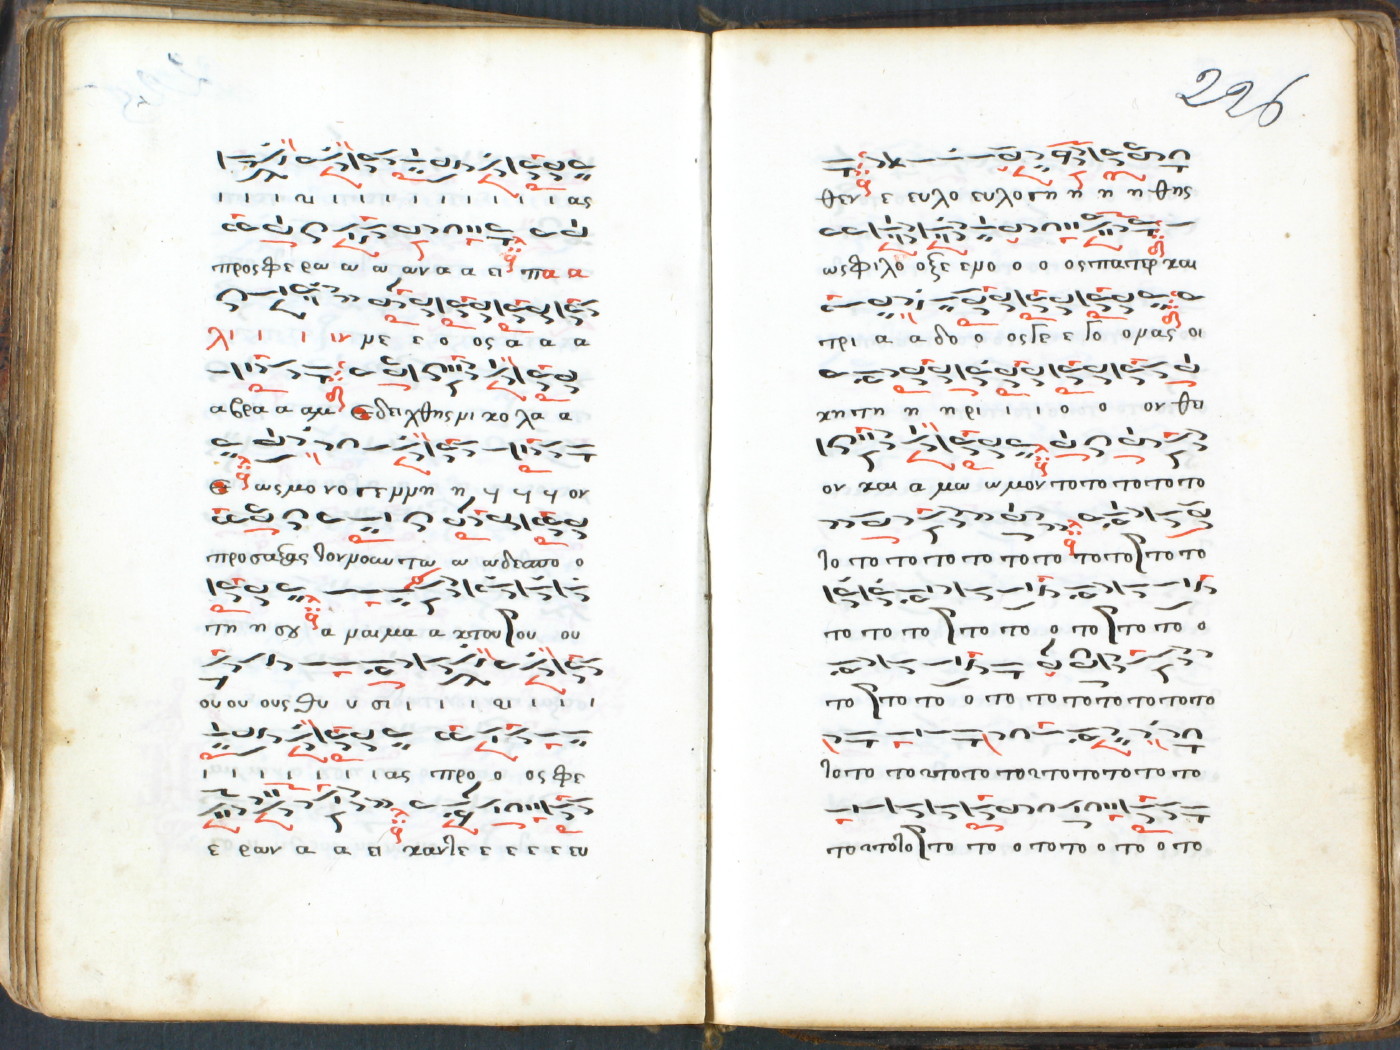 ι ι ι ι ι ι ι ι ι ι ι ι ας
προς φε ρω ω ω ων α α ει πα α
λι ι ι ι ιν με ε ο ος α α α
α βρα α αμ Εδειχθης μι χο λα α
Ε ως μο νο γε μμη η η η η ον
προσαξας τον μοαυτω ω ω δεσπο ο
τη η σȣ α μαιμα α κτου ου ου
ου ου ους θυ υ σι ι ι ι ι ι ι ι
ι ι ι ι ι ι ι ας προ ο ος φε
ε ρων α α ει καντε ε ε ε ε ευ
226
θεν ε ευλο ευλογη η η η θης
ως φιλο οξε εμο ο ο ος πατερ και
τρι α α δο ο ος τε ε το ο μας οι
κητη η ηρι ι ι ο ο ον θει
ον και α μω ω μον το το το το το
το το το το το το το το το το
το το το το το ο το το το ο
το το το ο το το το το το το
το το το το το το το το το το
το το το το το ο το το ο το ο το